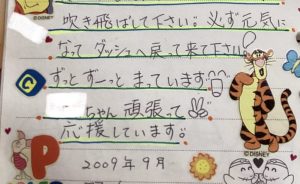 吹き飛ばして下さい。必ず元気に
©DISNEY
なって ダッシュで戻って来て下さい!
G ずっと ずーっと まっています
ちゃん 頑張って
応援しています。
©DISNEY
P
2009年9月